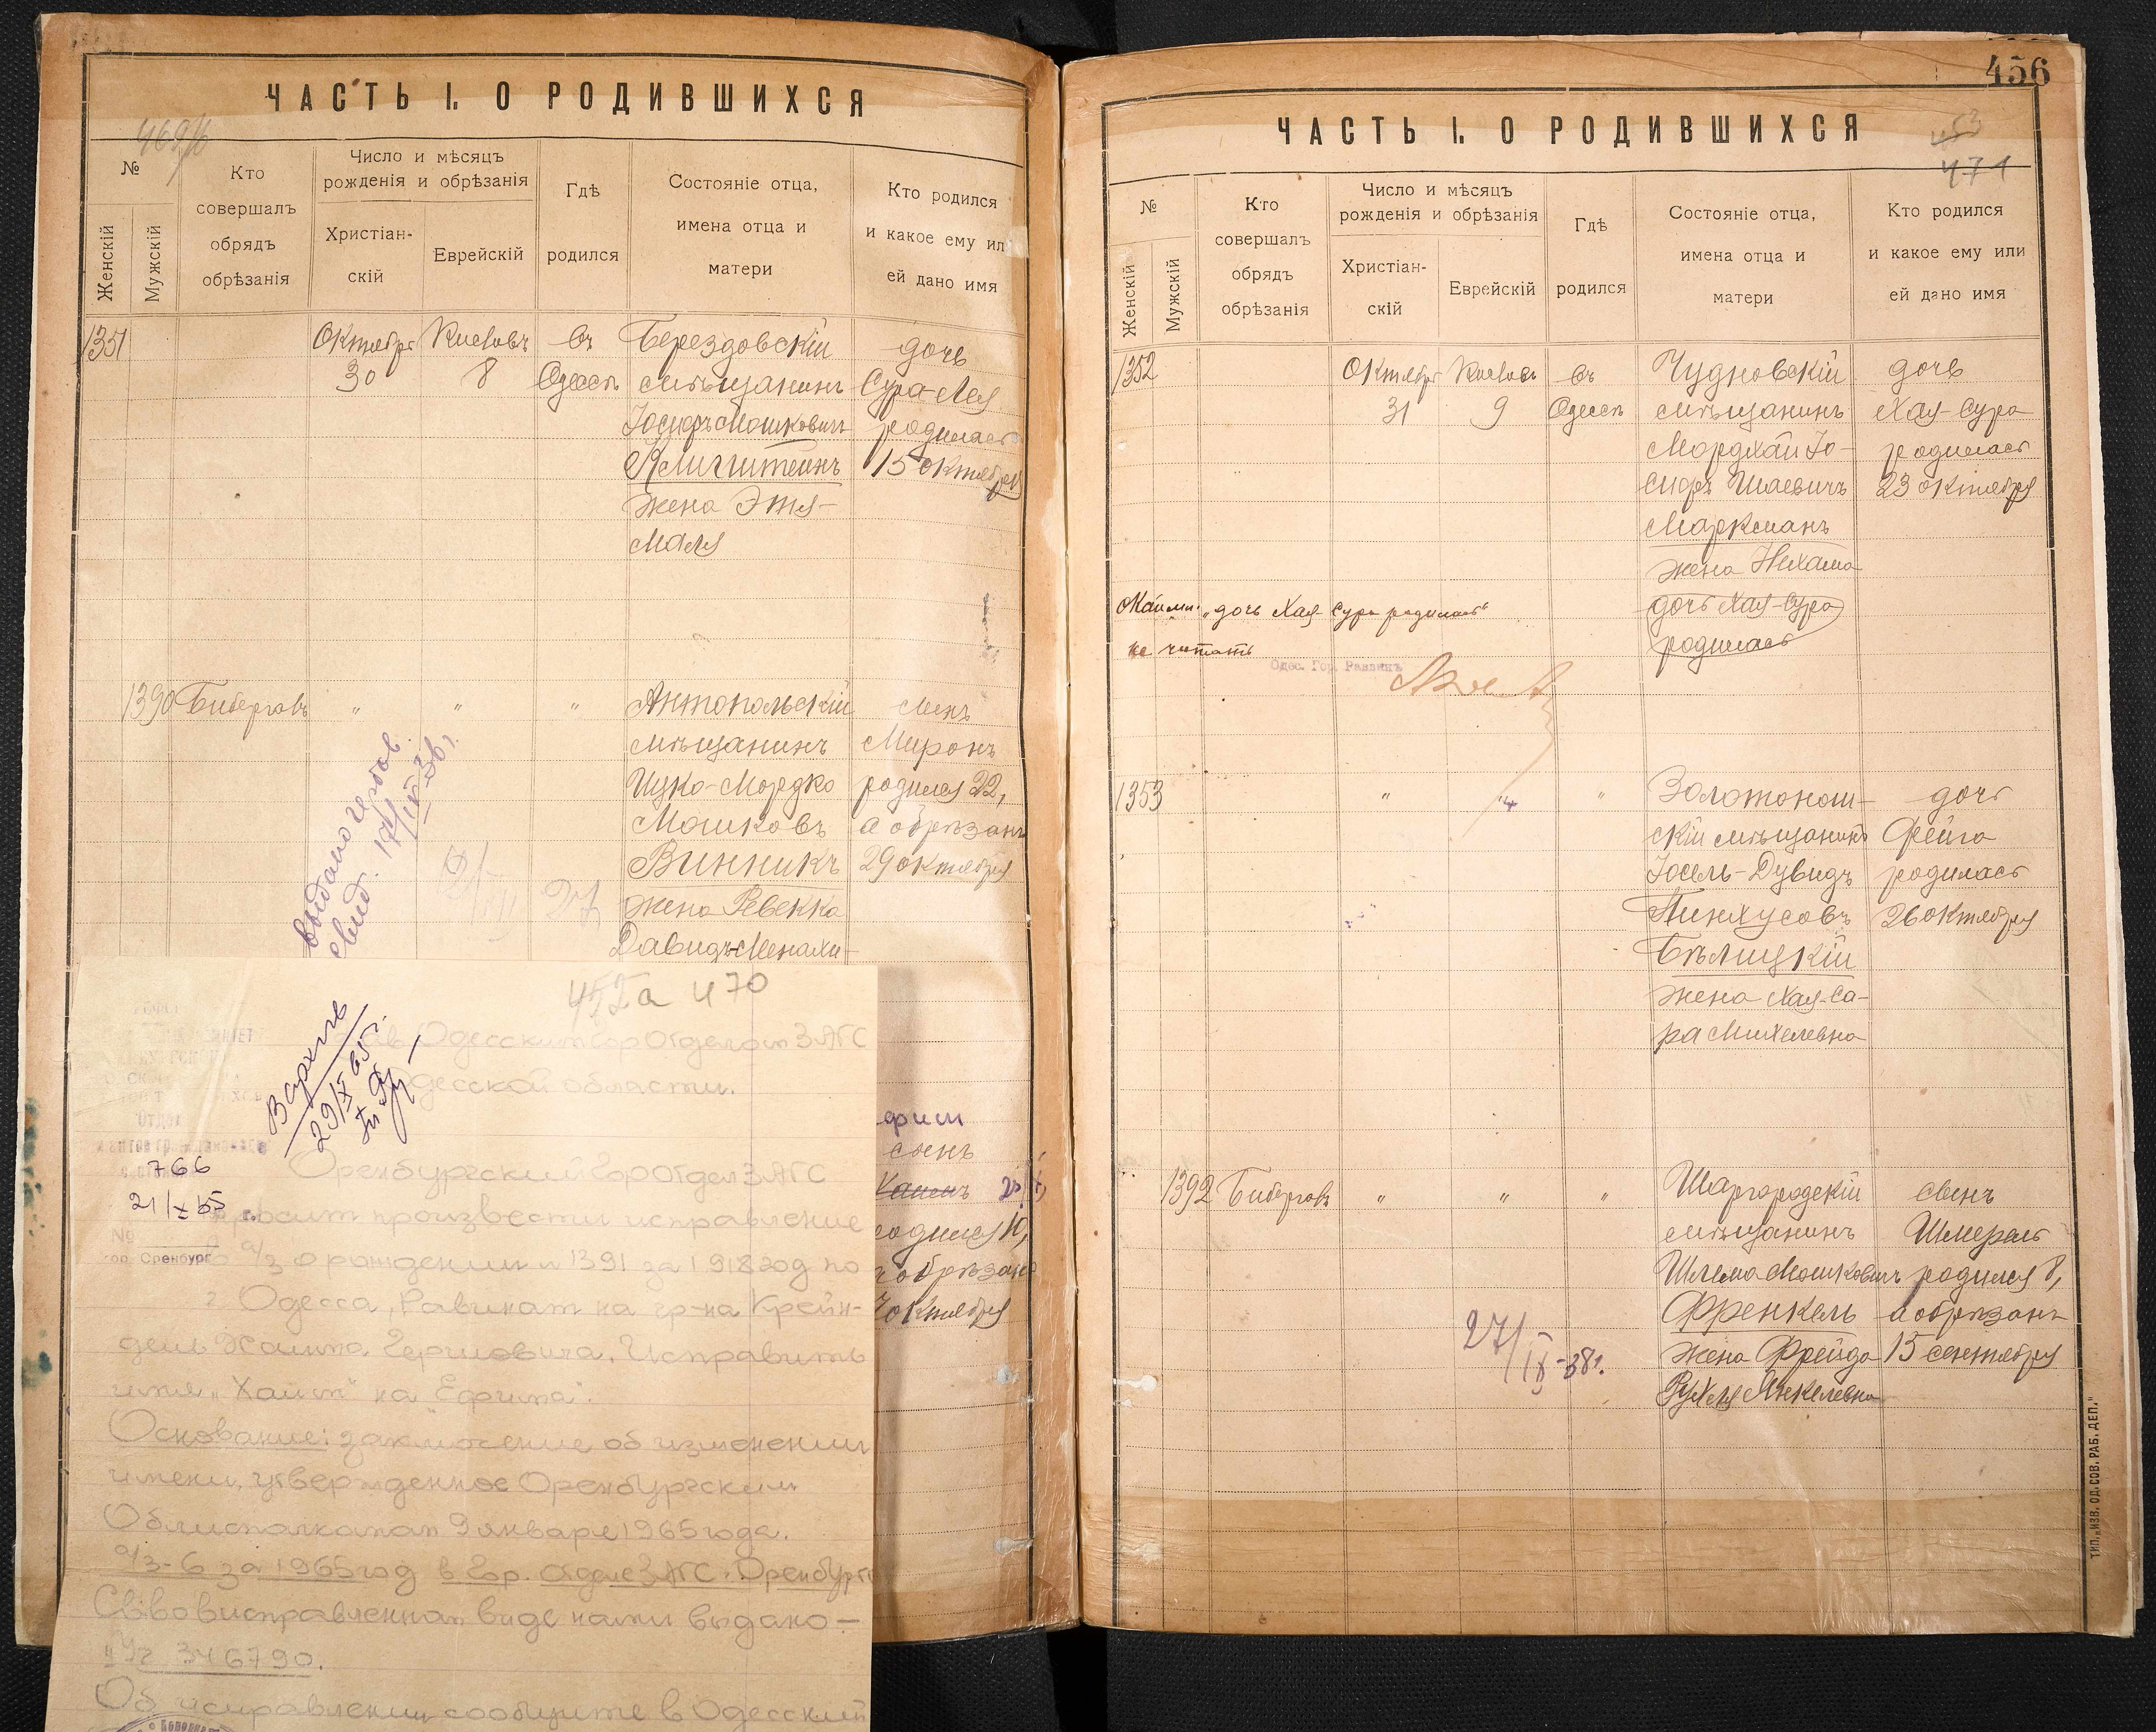 ЧАСТЬ I. О РОДИВШИХСЯ
469/6
№
Женскій
Мужскій
Кто
совершалъ
обрядъ
обрѣзанія
Число и мѣсяцъ
рожденія и обрѣзанія
Христіан-
скій
Еврейскій
Гдѣ
родился
Состояніе отца,
имена отца и
матери
Кто родился
и какое ему ил
ей дано имя
1351
Октября
30
Кислевъ
8
въ
Одессѣ
Берездовскій
мѣщанинъ
Іосифъ Мошковичъ
Клигштейнъ
жена Этя-
Маля
дочь
Сура-Лея
родилась
15 октября
1390
Биберговъ
"
"
"
Антопольскій
мѣщанинъ
Ицко-Мордко
Мошковъ
Винникъ
жена Ревекка
Давидъ-Менахи-
сынъ
Миронъ
родился 22,
а обрѣзанъ
29 октября
выдано гербов.
свид. 17/IX 36 г.
452а 470
в Одесский Гор Отдел ЗАГС
десской области.
В архив
29/X 65 г.
766
21/X 65 г.
№
гор. Оренбург
Оренбургский Гор Отдел ЗАГС
просит произвести исправление
а/з о рождении № 1391 за 1918 год по
г. Одесса, Равинат на гр-на Крейн-
дель Хаима Гершовича. Исправить
имя "Хаим" на "Ефим".
Основание: заключение об изменении
имени, утвержденное Оренбургским
Облисполкомом 9 января 1965 года.
а/з-6 за 1965 год в Гор. отделе ЗАГС. Оренбург
Св-во в исправленном виде нами выдано —
346790.
Об исправлении сообщите в Одесский
фим
сынъ
Хаимъ
родился 10,
а обрѣзанъ
октября
456
ЧАСТЬ I. О РОДИВШИХСЯ
453
471
№
Женскій
Мужскій
Кто
совершалъ
обрядъ
обрѣзанія
Число и мѣсяцъ
рожденія и обрѣзанія
Христіан-
скій
Еврейскій
Гдѣ
родился
Состояніе отца,
имена отца и
матери
Кто родился
и какое ему или
ей дано имя
1352
Октября
31
Кислевъ
9
въ
Одессѣ
Чудновскій
мѣщанинъ
Мордхай Іо-
сифъ Шаевичъ
Марксманъ
жена Нехама
дочь Хая-Сура
родилась
дочь
Хая-Сура
родилась
23 октября
"дочь Хая-Сура родилась"
не читать
Одес. Гор. Раввинъ
1353
"
"
"
Золотонош-
скій мѣщанинъ
Іосель-Дувидъ
Пинхусовъ
Бѣлицкій
жена Хая-Са-
ра Михелевна
дочь
Фейга
родилась
26 октября
1392
Биберговъ
"
"
"
Шаргородскій
мѣщанинъ
Шлема Мошковичъ
Френкель
жена Фрейда
Рухля Янкелевна
сынъ
Шмераъ
родился 8,
а обрѣзанъ
15 сентября
27/IX-38 г.
ТИП. „ИЗВ. ОД. СОВ. РАБ. ДЕП."